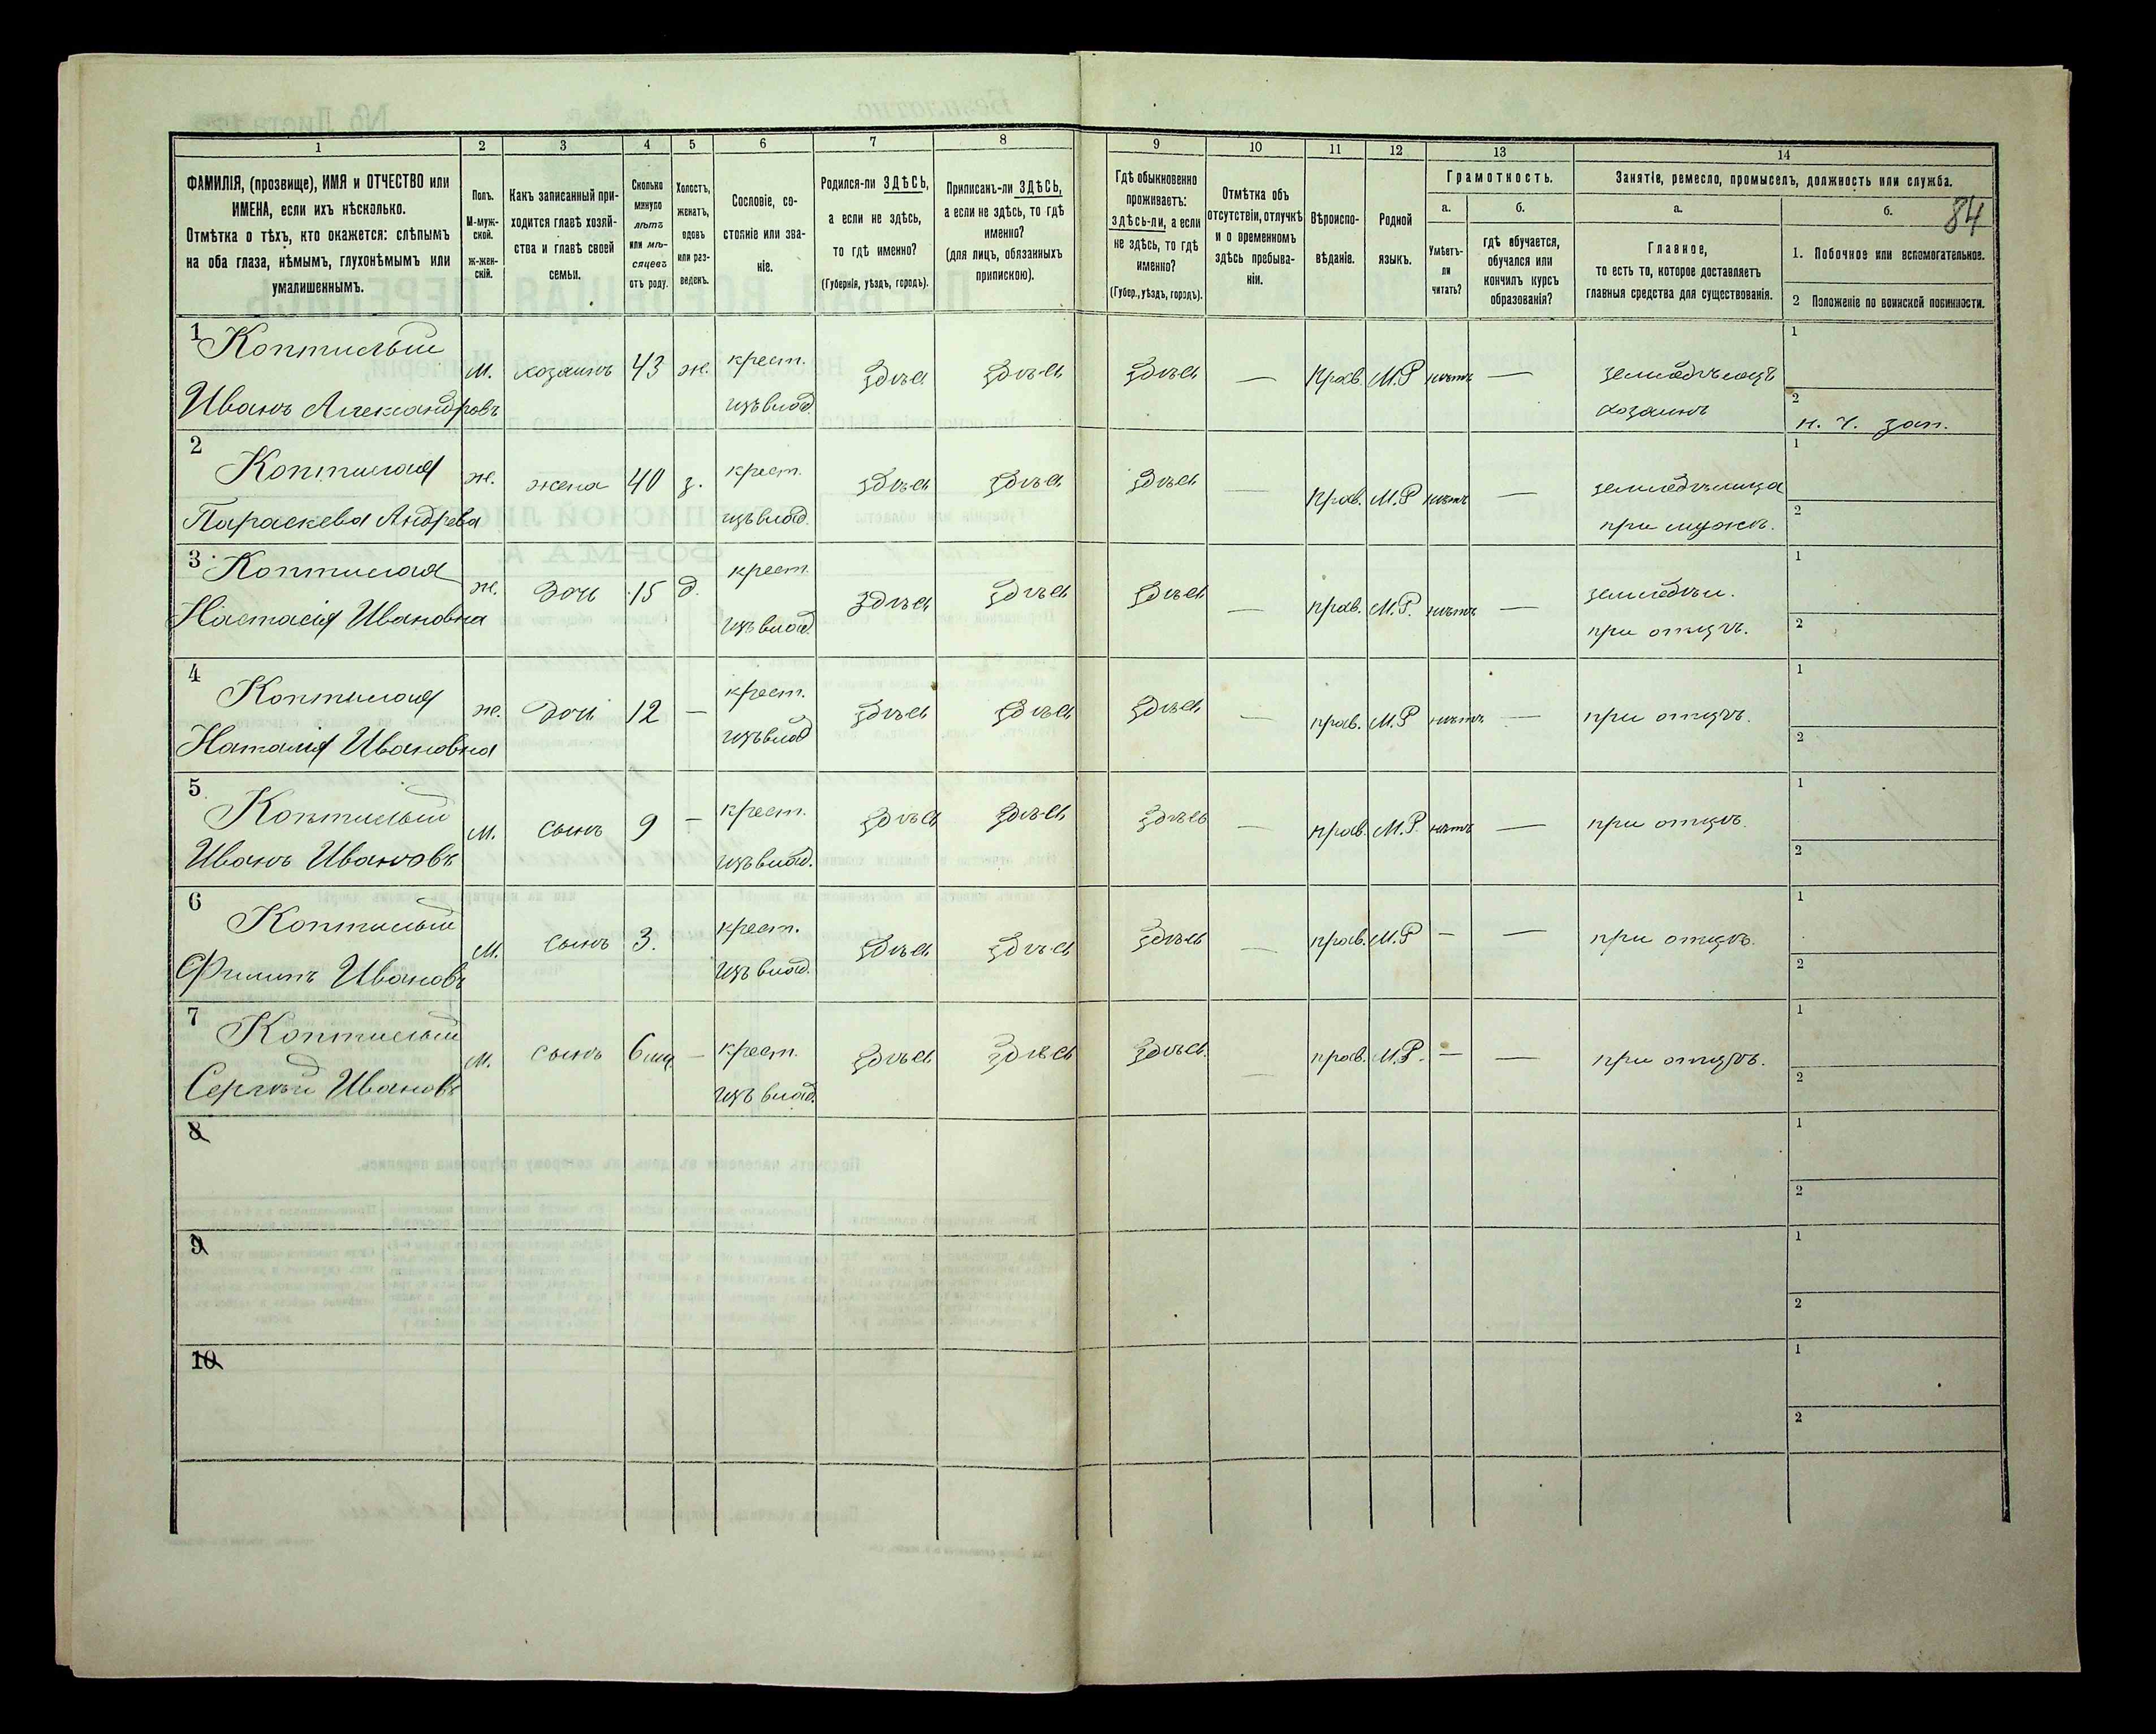 84
1 2 3 4 5 6 7 8 9 10 11 12 13 14
ФАМИЛІЯ, (прозвище), ИМЯ и ОТЧЕСТВО или
ИМЕНА, если ихъ нѣсколько.
Отмѣтка о тѣхъ, кто окажется: слѣпымъ
на оба глаза, нѣмымъ, глухонѣмымъ или
умалишеннымъ.
Полъ.
М-муж-
ской.
Ж-жен-
скій.
Какъ записанный при-
ходится главѣ хозяй-
ства и главѣ своей
семьи.
Сколько
минуло
лѣтъ
или мѣ-
сяцевъ
отъ роду.
Холостъ,
женатъ,
вдовъ
или раз-
веденъ.
Сословіе, со-
стояніе или зва-
ніе.
Родился-ли ЗДѢСЬ,
а если не здѣсь,
то гдѣ именно?
(Губернія, уѣздъ, городъ).
Приписанъ-ли ЗДѢСЬ,
а если не здѣсь, то гдѣ
именно?
(для лицъ, обязанныхъ
припискою).
Гдѣ обыкновенно
проживаетъ:
здѣсь-ли, а если
не здѣсь, то гдѣ
именно?
(Губер., уѣздъ, городъ).
Отмѣтка объ
отсутствіи, отлучкѣ
и о временномъ
здѣсь пребыва-
ніи.
Вѣроиспо-
вѣданіе.
Родной
языкъ.
Грамотность.
а.
Умѣетъ-
ли
читать?
б.
гдѣ обучается,
обучался или
кончилъ курсъ
образованія?
Занятіе, ремесло, промыселъ, должность или служба.
а.
Главное,
то есть то, которое доставляетъ
главныя средства для существованія.
б.
1. Побочное или вспомогательное.
2 Положеніе по воинской повинности.
1 Коптилый м. хозяинъ 43 ж. крест. здѣсь здѣсь здѣсь — прав. М.Р нѣтъ — земледѣлецъ 1
Иванъ Александровъ изъ влад. хозяинъ 2 н. ч. зап.
2 Коптилая ж. жена 40 з. крест. здѣсь здѣсь здѣсь — прав. М.Р нѣтъ — земледѣлица 1
Параскева Андрева изъ влад. при мужѣ. 2
3 Коптилая ж. дочь 15 д. крест. здѣсь здѣсь здѣсь — прав. М.Р. нѣтъ — земледѣл. 1
Настасія Ивановна изъ влад. при отцѣ. 2
4 Коптилая ж. дочь 12 — крест. здѣсь здѣсь здѣсь — прав. М.Р нѣтъ — при отцѣ. 1
Наталія Ивановна изъ влад 2
5 Коптилый м. сынъ 9 — крест. здѣсь здѣсь здѣсь — прав. М.Р. нѣтъ — при отцѣ. 1
Иванъ Ивановъ изъ влад. 2
6 Коптилый м. сынъ 3. крест. здѣсь здѣсь здѣсь — прав. М.Р — — при отцѣ. 1
Филипъ Ивановъ изъ влад. 2
7 Коптилый м. сынъ 6 мц — крест. здѣсь здѣсь здѣсь. — прав. М.Р. — — при отцѣ. 1
Сергѣй Ивановъ изъ влад. 2
8 1
2
9 1
2
10 1
2